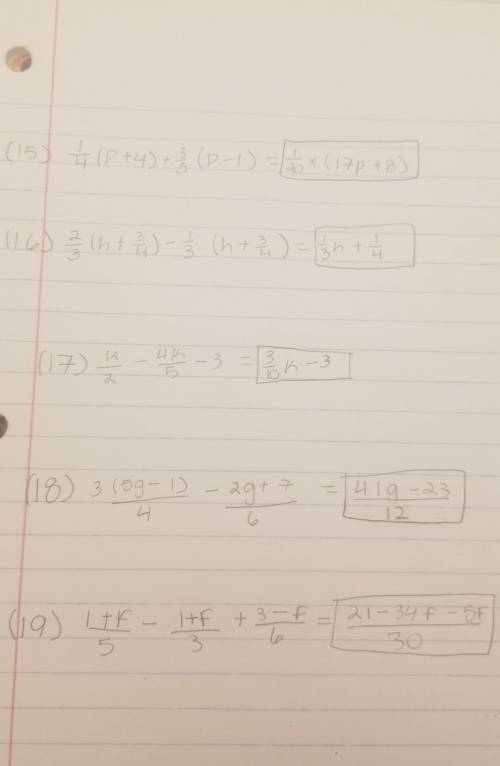 (15) 1/4 (p+4) + 3/5 (p-1) = 1/20 × (17p+8)
(16) 2/3 (h + 3/4) - 1/3 (h + 3/4) = 1/3 h + 1/4
(17) k/2 - 4k/5 - 3 = 3/10 k - 3
(18) 3(5g-1)/4 - 2g+7/6 = 41g-23/12
(19) 1+f/5 - 1+f/3 + 3-f/6 = 21-34f-5f/30